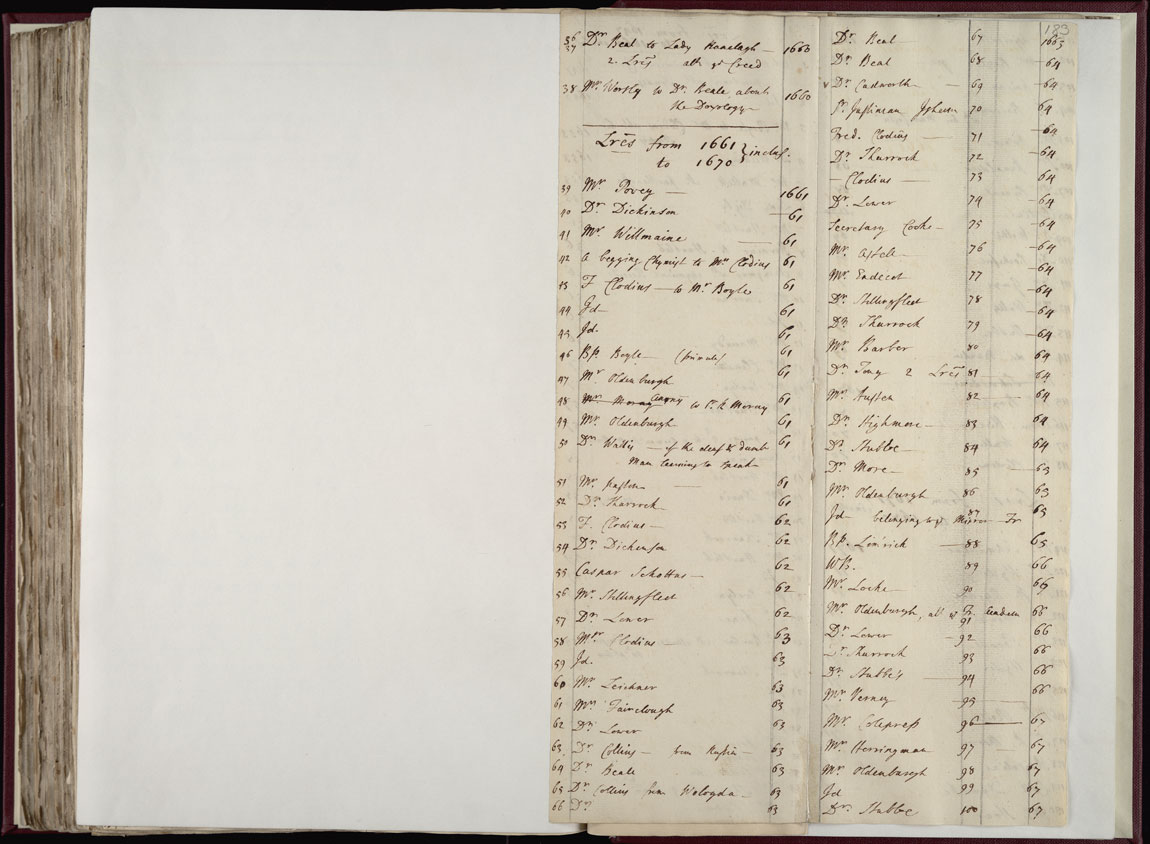 36 Dr. Beal to Lady Ranelagh — 1660
37 2 Lres abt ye Creed
38 Mr Worsly to Dr. Beale about 1660
the Doxology —
Lres from 1661
to 1670 } inclus.
39 Mr. Povey — 1661
40 Dr Dickinson — 61
41 Mr. Willmaine — 61
42 A begging Chymist to Mr Clodius 61
43 F Clodius — to Mr Boyle 61
44 Jd — 61
45 Jd. 61
46 Bp. Boyle — (private) 61
47 Mr Oldenburgh 61
48 to Sr. R Moray 61
49 Mr. Oldenburgh — 61
50 Dr. Wallis — of the deaf & dumb 61
Man learning to speak —
51 Mr. — 61
52 Dr. Sharrock — 61
53 F. Clodius — 62
54 Dr. Dickenson 62
55 Caspar Schottus — 62
56 Mr. Stillingfleet 62
57 Dr. Lower 62
58 Mr. Clodius — 63
59 Jd. 63
60 Mr. Leichner 63
61 Mr. Fairclough 63
62 Dr. Lower 63
63 Dr. Collins — from Russia — 63
64 Dr. Beale 63
65 Dr. Collins from Wologda — 63
66 Dr. 63
183
Dr. Beal — 67 1663
Dr. Beal 68 — 64
Dr. Cudworth — 69 — 64
Sr. Justinian Isham 70 64
Fred. Clodius — 71 — 64
Dr. Sharrock 72 — 64
— Clodius — 73 — 64
Dr. Lower 74 — 64
Secretary Cooke — 75 — 64
Mr. Astell — 76 — 64
Mr. Endecot — 77 — 64
Dr. Stillingfleet 78 — 64
Dr. Sharrock 79 — 64
Mr. Barber 80 64
Dr. Tony 2 Lres 81 64
Mr. Austen 82 — 64
Dr. Highmore — 83 64
Dr. Stubbe 84 64
Dr. More — 85 — 63
Mr. Oldenburgh 86 63
Jd — belonging to 87 65
Bp. Limrick — 88 65
WB. 89 66
Mr. Locke — 90 66
Mr. Oldenburgh, abt ye 91 66
Dr. Lower — 92 66
Dr. Sharrock 93 66
Dr. Stubbe's — 94 66
Mr. Verney — 95 — 66
Mr. Colepress 96 — 67
Mr. Herringman 97 — 67
Mr. Oldenburgh 98 67
Jd 99 67
Dr. Stubbe 100 67